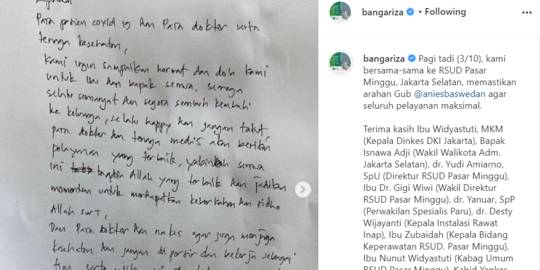 Para pasien covid 19 dan Para dokter serta
tenaga kesehatan,
Kami ingin sampaikan hormat dan doa kami
untuk Ibu dan bapak semua, semoga
selalu semangat dan segera sembuh kembali
ke keluarga, selalu happy dan jangan takut
para dokter dan tenaga medis akan berikan
pelayanan yang terbaik, yakinlah semua
ini Allah yang terbaik dan jadikan
momentum untuk mendapatkan dan ridho
Allah SWT,
Dan Para dokter dan nakes agar juga menjaga
kesehatan dan jangan di porsir dan bekerja sebagai
bangariza • Following
bangariza Pagi tadi (3/10), kami
bersama-sama ke RSUD Pasar
Minggu, Jakarta Selatan, memastikan
arahan Gub @aniesbaswedan agar
seluruh pelayanan maksimal.
Terima kasih Ibu Widyastuti, MKM
(Kepala Dinkes DKI Jakarta), Bapak
Isnawa Adji (Wakil Walikota Adm.
Jakarta Selatan), dr. Yudi Amiarno,
SpU (Direktur RSUD Pasar Minggu),
Ibu Dr. Gigi Wiwi (Wakil Direktur
RSUD Pasar Minggu), dr. Yanuar, SpP
(Perwakilan Spesialis Paru), dr. Desty
Wijayanti (Kepala Instalasi Rawat
Inap), Ibu Zubaidah (Kepala Bidang
Keperawatan RSUD. Pasar Minggu),
Ibu Nunut Widyastuti (Kabag Umum
RSUD Pasar Minggu), Kabid Yankes